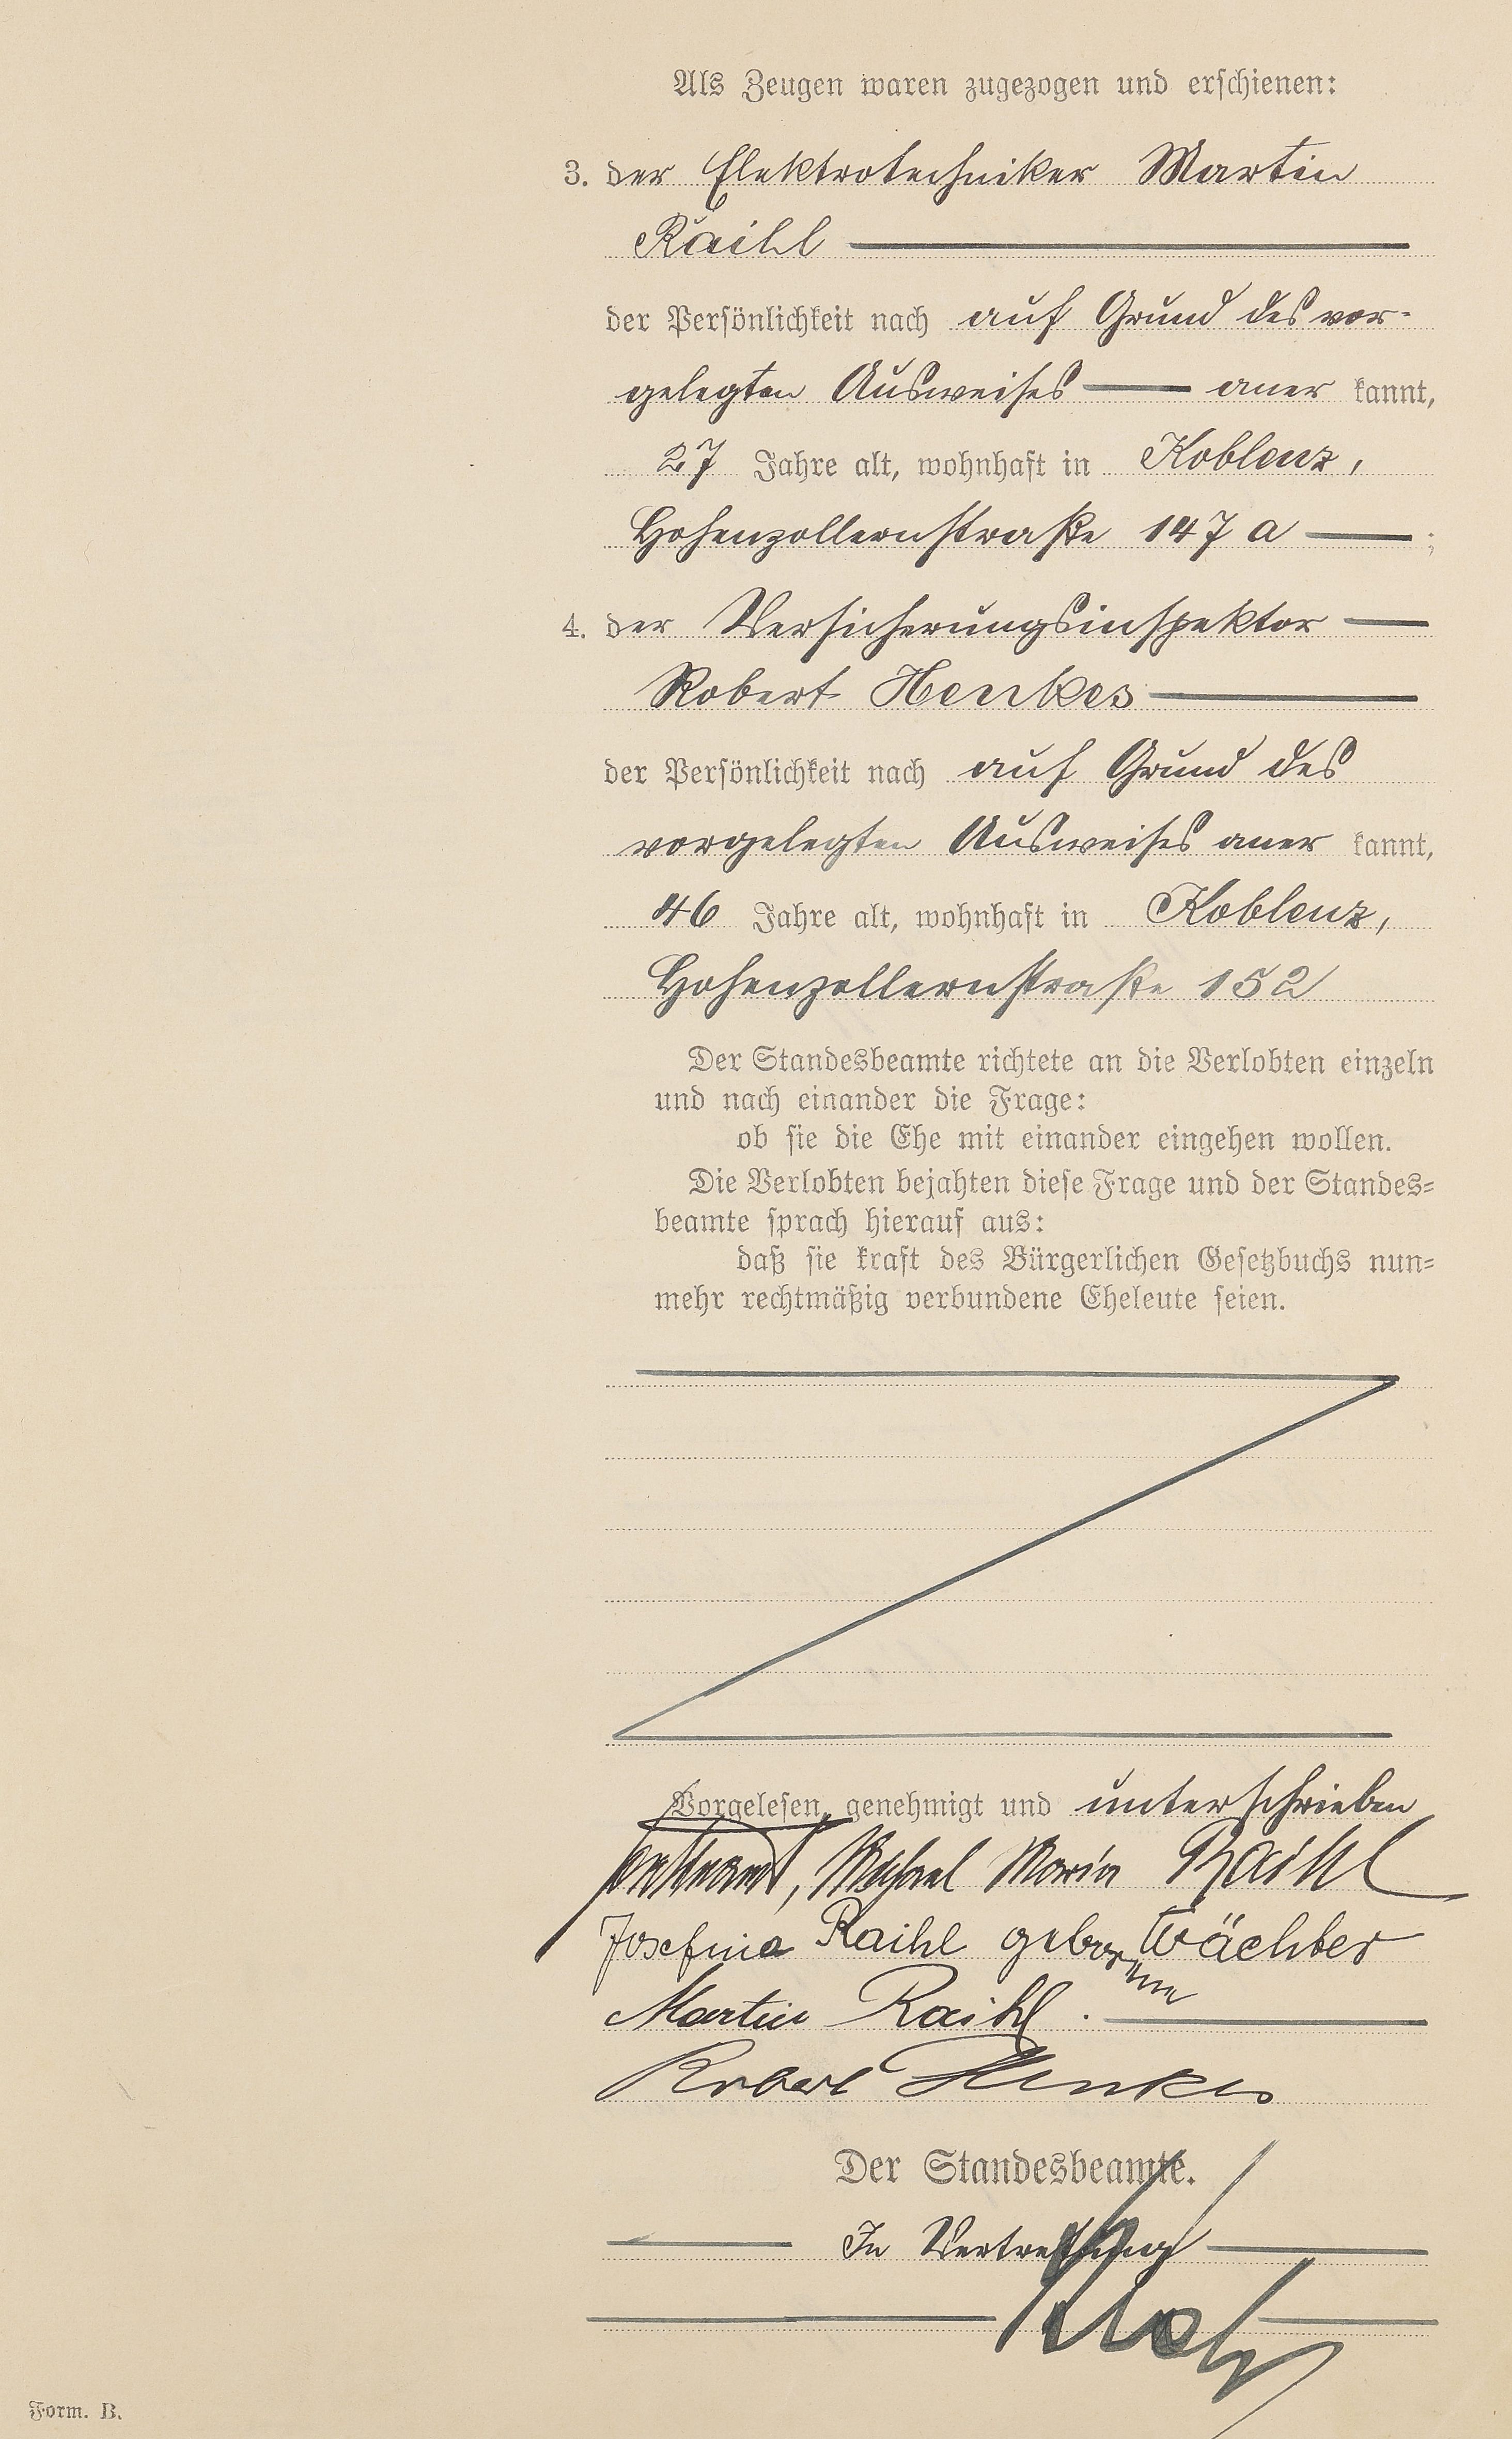 Als Zeugen waren zugezogen und erschienen:
3. der Elektrotechniker Martin
Raihl
der Persönlichkeit nach auf Grund des vor-
gelegten Ausweises aner kannt,
27 Jahre alt, wohnhaft in Koblenz,
Hohenzollernstraße 147 a ;
4. der Versicherungsinspektor
Robert Henkes
der Persönlichkeit nach auf Grund des
vorgelegten Ausweises aner kannt,
46 Jahre alt, wohnhaft in Koblenz,
Hohenzollernstraße 152
Der Standesbeamte richtete an die Verlobten einzeln
und nach einander die Frage:
ob sie die Ehe mit einander eingehen wollen.
Die Verlobten bejahten diese Frage und der Standes-
beamte sprach hierauf aus:
daß sie kraft des Bürgerlichen Gesetzbuchs nun-
mehr rechtmäßig verbundene Eheleute seien.
Vorgelesen, genehmigt und unterschrieben
Michael Maria Raihl
Josefina Raihl geborene Wächter
Martin Raihl.
Robert Henkes
Der Standesbeamte.
In Vertretung
Form. B.